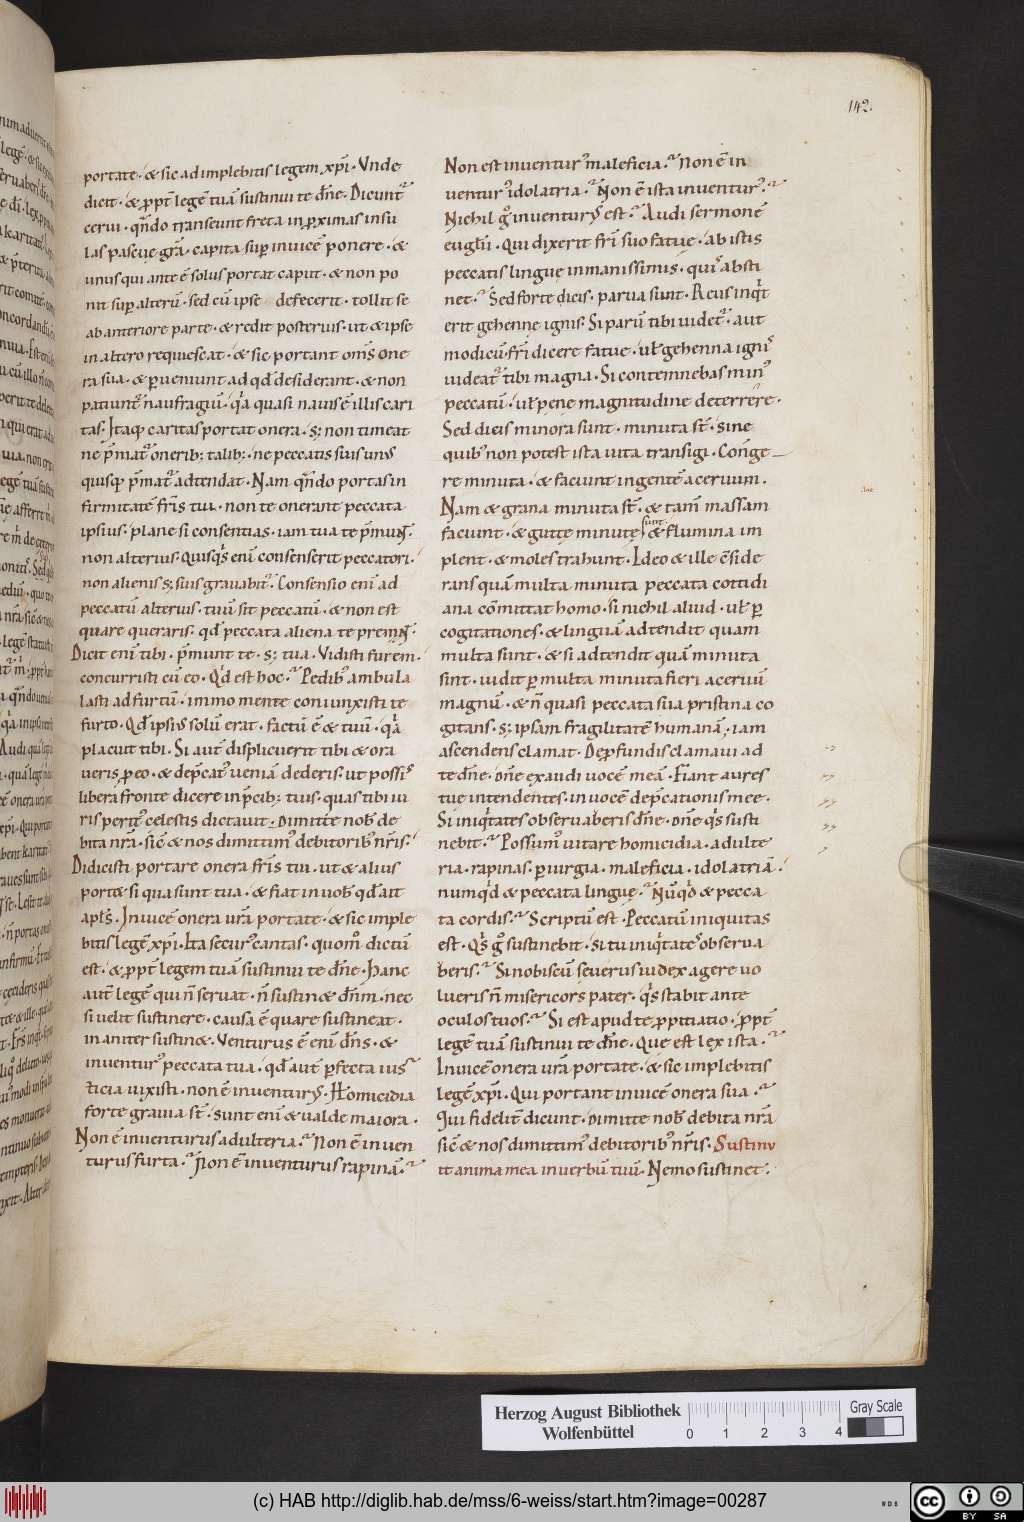 142.
portate · & sic adimplebitis legem xp̄i · Vnde
dicit · & ꝓpt̄ legē tuā sustinui te dn̄e · Dicunt᷑
cerui · qn̄do transeunt freta in ꝓximas insu
las pascuę grā · capita sup̱ inuicē ponere · &
unus qui ante ē solus portat caput · & non po
nit sup̱ alterū · sed cū ipse defecerit · tollit se
ab anteriore parte · & redit posterius · ut & ipse
in altero requiescat · & sic portant om̄s one
ra sua · & ꝑueniunt ad qd̄ desiderant · & non
patiunt᷑ naufragiū · qͥa quasi nauis ē illis cari
tas · Itaq; caritas portat onera · s; non timeat
ne p̄mat᷑ onerib; talib; · ne peccatis suis unus
quisq; p̄mat᷑ adtendat · Nam qn̄do portas in
firmitatē fr̄is tui · non te onerant peccata
ipsius · plane si consentias · iam tua te p̄munt ·
non alterius · Quisqͥs enī consenserit peccatori ·
non alienis s; suis grauabit᷑ · Consensio enī ad
peccatū alterius · tuū sit peccatū · & non est
quare queraris · qd̄ peccata aliena te premunt ·
Dicit enī tibi · p̄munt te · s; tua · Vidisti furem ·
concurristi cū eo · Qͥd est hoc · Pedib᷒ ambula
lasti ad furtū · immo mente coniunxisti te
furto · Qd̄ ipsius solū erat · factū ē & tuū · qͥa
placuit tibi · Si aut̄ displicuerit tibi & ora
ueris ꝓ eo · & dep̄cat᷒ ueniā dederis · ut possis
libera fronte dicere in p̄cib; tuis · quas tibi iu
ris perit᷒ celestis dictauit · Dimitte nob̄ de
bita nr̄a · sicē & nos dimittim᷒ debitorib᷒ nr̄is ·
Didicisti portare onera fr̄is tui · ut & alius
porte si qua sunt tua · & fiat in uob̄ qd̄ ait
apl̄s · Inuicē onera ur̄a portate · & sic imple
bitis legē xp̄i · Ita secur᷒ cantas · quom̊ dictū
est · & ꝓpt̄ legem tuā sustinui te dn̄e · Hanc
aut̄ legē qui n̄ seruat · n̄ sustin& dn̄m · nec
si uelit sustinere · causa ē quare sustineat ·
inaniter sustin& · Venturus ē enī dn̄s · &
inuentur᷒ peccata tua · qd̄ aut̄ ꝑfecta ius
ticia uixisti · non ē inuenturus · Homicidia
forte grauia st̄ · sunt enī & ualde maiora ·
Non ē inuenturus adulteria · Non ē inuen
turus furta · Non ē inuenturus rapinā ·
Non est inuentur᷒ maleficia · Non ē in
uentur᷒ idolatria · Non ē ista inuentur᷒ ·
Niehil gͦ inuenturus est · Audi sermonē
euglii · Qui dixerit fr̄i suo fatue · ab istis
peccatis linguę inmanissimis · quis absti
net · Sed forte dicis · parua sunt · Reus inqͥt
erit gehennę ignis · Si parū tibi uidet᷑ · aut
modicū fr̄i dicere fatue · ul̄ gehenna ignis
uideat᷑ tibi magna · Si contemnebas min᷒
peccatū · ul̄ pene magnitudine deterrere ·
Sed dicis minora sunt · minuta st̄ · sine
quib᷒ non potest ista uita transigi · Conge
re minuta · & faciunt ingentē aceruum ·
Nam & grana minuta st̄ · & tam̄ massam
faciunt · & guttę minutę sunt & flumina im
plent · & moles trahunt · Ideo & ille cside
rans quā multa minuta peccata cottidi
ana cōmittat homo · si niehil aliud · ul̄ ꝑ
cogitationes · & linguā adtendit quam
multa sunt · & si adtendit quā minuta
sint · uidit ꝑ multa minuta fieri aceruū
magnū · & n̄ quasi peccata sua pristina co
gitans · s; ipsam fragilitatē humanā · iam
ascendens clamat · De ꝓfundis clamaui ad
te dn̄e · dn̄e exaudi uocē meā · Fiant aures
tuę intendentes · in uocē dep̄cationis meę ·
Si iniqͥtates obseruaberis dn̄e · dn̄e qͥs susti
nebit · Possum᷒ uitare homicidia · adulte
ria · rapinas · ꝑiurgia · maleficia · idolatriā ·
numqͥd & peccata linguę · Nūqͥd & pecca
ta cordis · Scriptū est · Peccatū iniquitas
est · Qͥs gͦ sustinebit · si tu iniqͥtates obserua
beris · Si nobiscū seuerus iudex agere uo
lueris n̄ misericors pater · qͥs stabit ante
oculos tuos · Si est apud te ꝓpitiatio · ꝓpt̄
legē tuā sustinui te dn̄e · Quę est lex ista ·
Inuicē onera ur̄a portate · & sic implebitis
legē xp̄i · Qui portant inuicē onera sua ·
Qui fidelit̄ dicunt · Dimitte nob̄ debita nr̄a
sicē & nos dimittim᷒ debitorib᷒ nr̄is · Sustinu
it anima mea in uerbū tuū · Nemo sustinet ·
Herzog August Bibliothek
Wolfenbüttel
0 1 2 3 4
Gray Scale
(c) HAB http://diglib.hab.de/mss/6-weiss/start.htm?image=00287
cc BY SA